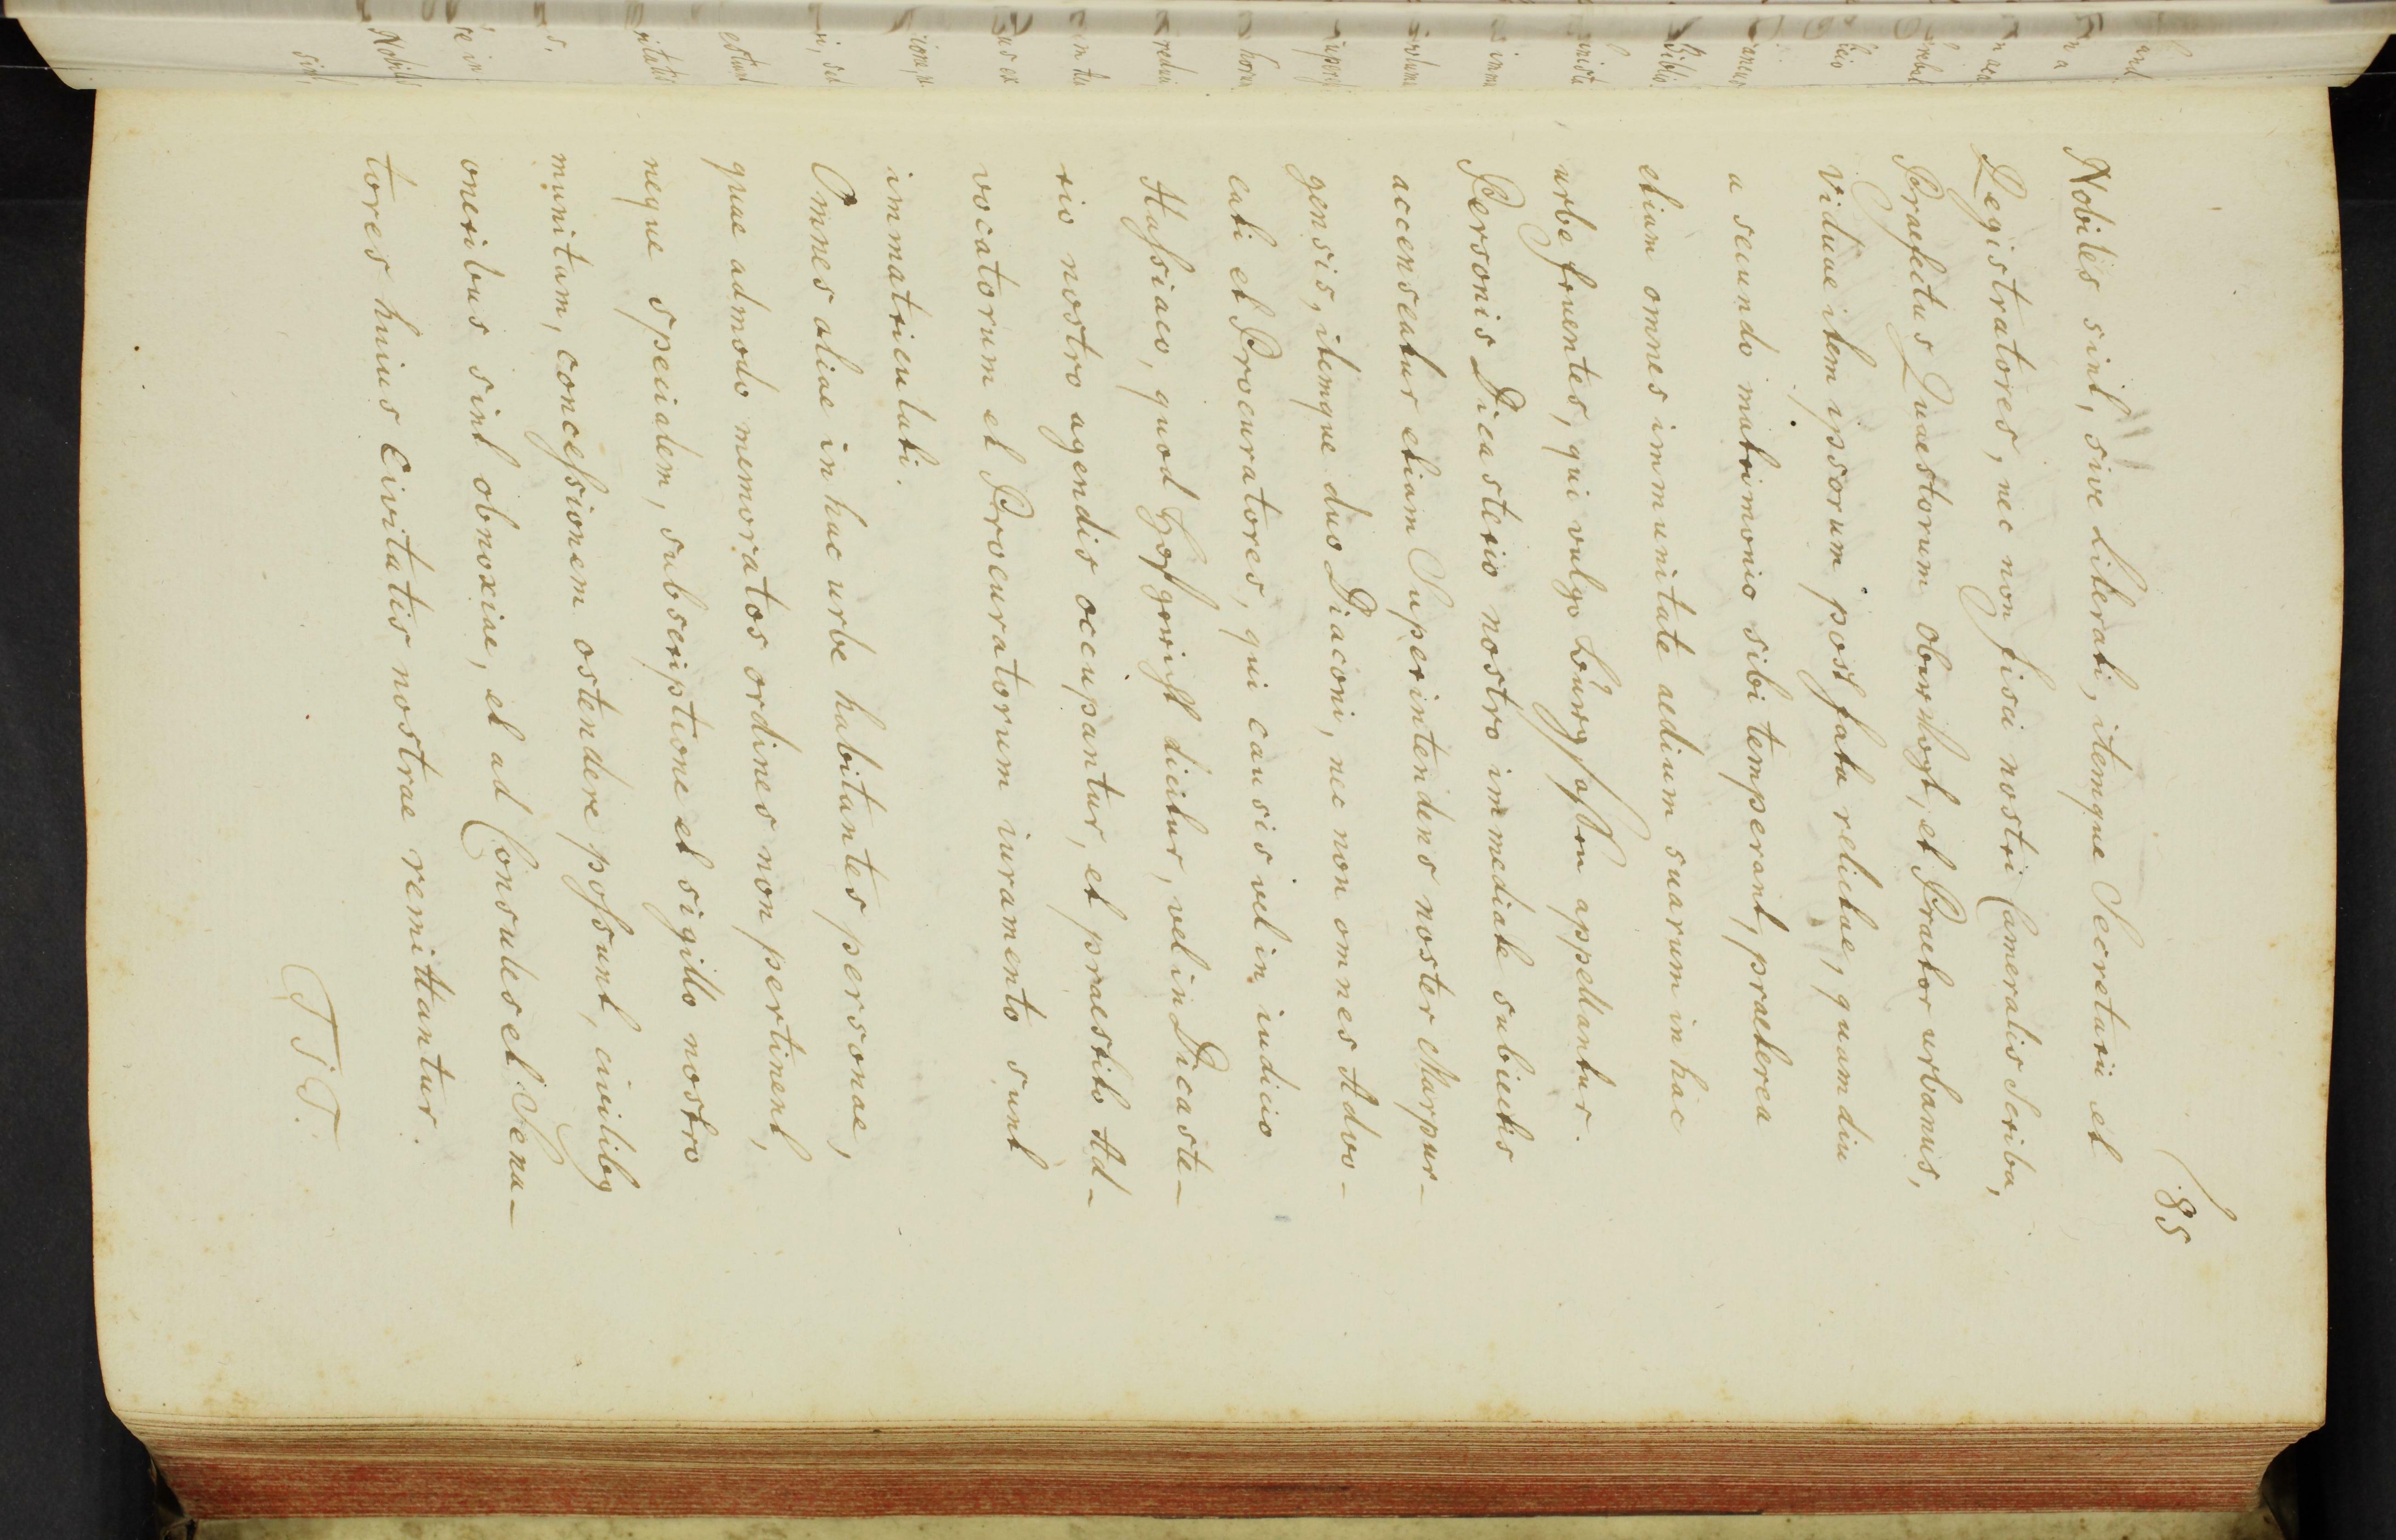 185
Nobiles sint, sive Literati, itemque Secretarii et
Registratores, nec non fisci nostri Cameralis Scriba,
Praefectus Quaestorum Ober Vogt, et Praetor urbanus,
Viduae item ipsorum post fata relictae, quamdiu
a secundo matrimonio sibi temperant, praeterea
etiam omnes immunitate aedium suarum in hac
urbe fruentes, qui vulgo Burgsassen appellantur.
Personis Dicasterio nostro immediate subiectis
accenseatur etiam Superintendens noster Marpur-
gensis, itemque duo Diaconi, nec non omnes Advo-
cati et Procuratores, qui causis vel in iudicio
Hassiaco, quod Hofgericht dicitur, vel in Dicaste-
rio nostro agendis occupantur, et praestito Ad-
vocatorum et Procuratorum iuramento sunt
immatriculati.
Omnes aliae in hac urbe habitantes personae,
quae admodo memoratos ordines non pertinent,
neque specialem, subscriptione et sigillo nostro
munitam, concessionem ostendere possunt, civilibꝫ
oneribus sint obnoxiae, et ad Consules et Sena-
tores huius Civitatis nostrae remittantur.
T S T.